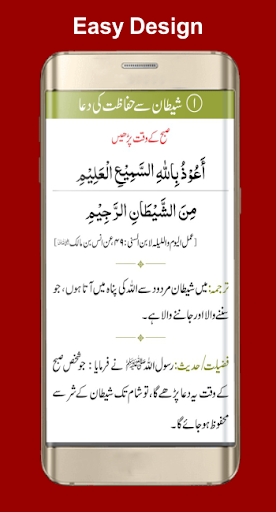 Easy Design
① شیطان سے حفاظت کی دعا
صبح کے وقت پڑھیں
أَعُوْذُ بِاللهِ السَّمِيْعِ الْعَلِيْمِ
مِنَ الشَّيْطَانِ الرَّجِيْمِ
[عمل الیوم واللیلہ لابن السنی:۴۹،عن انس بن مالک]
ترجمہ: میں شیطان مردود سے اللہ کی پناہ میں آتا ہوں، جو
سننے والا اور جاننے والا ہے۔
فضیلت/حدیث: رسول اللہ ﷺ نے فرمایا: جو شخص صبح
کے وقت یہ دعا پڑھے گا، تو شام تک شیطان کے شر سے
محفوظ ہو جائے گا۔